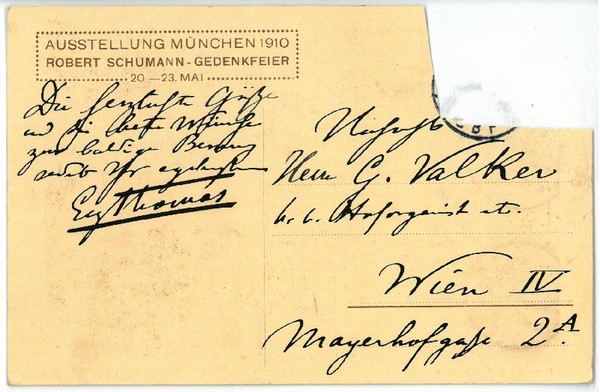 AUSSTELLUNG MÜNCHEN 1910
ROBERT SCHUMANN-GEDENKFEIER
20—23. MAI
Die herzlichsten Grüße
und die besten Wünsche
zur baldigen
Ihr
Thomas
Herrn G. Valker
k. k. Hoforganist etc.
Wien IV
Mayerhofgaße 2A